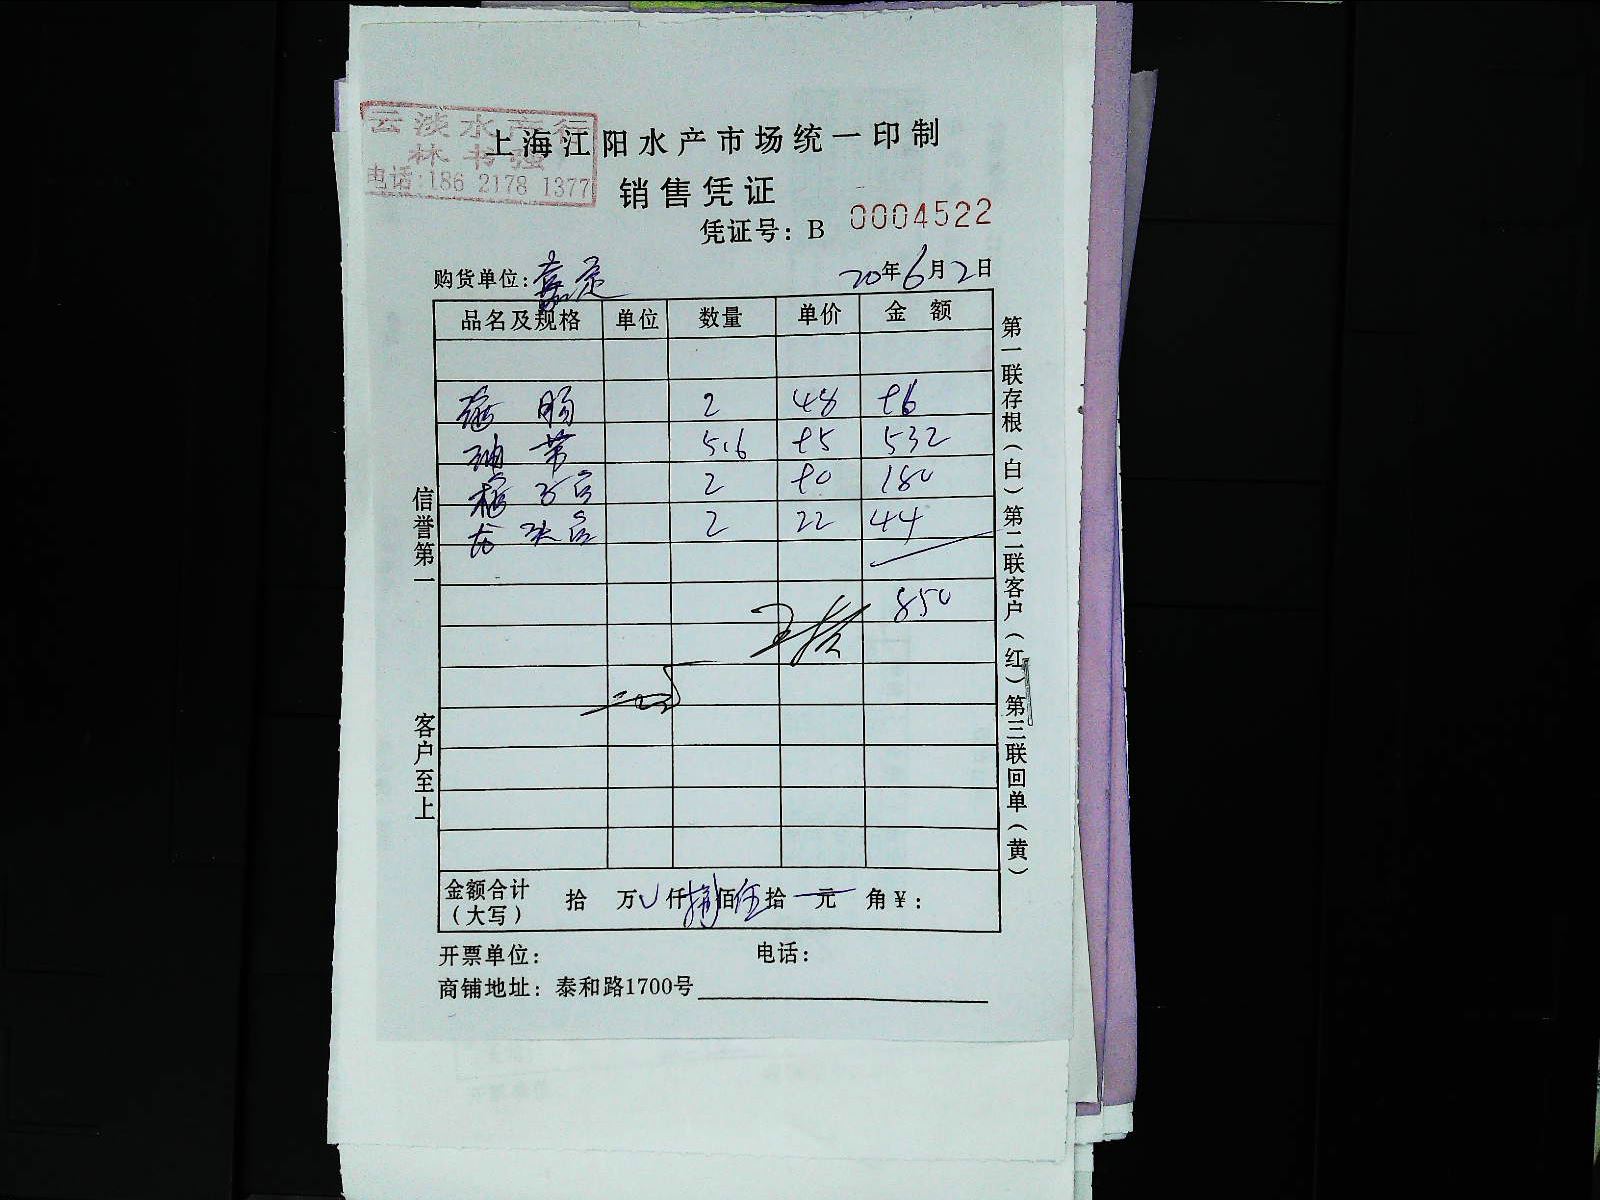 云淡水产行
林书强
电话:186 2178 1377
上海江阳水产市场统一印制
销售凭证
凭证号: B 0004522
购货单位: 嘉定 20年6月2日
品名及规格 单位 数量 单价 金额
肠 2 48 96
带 5.6 95 532
2 90 180
龙 2 22 44
850
金额合计（大写） 拾 万 仟捌佰伍拾 元 角¥:
开票单位: 电话:
商铺地址: 泰和路1700号
信誉第一 客户至上
第一联存根（白）第二联客户（红）第三联回单（黄）